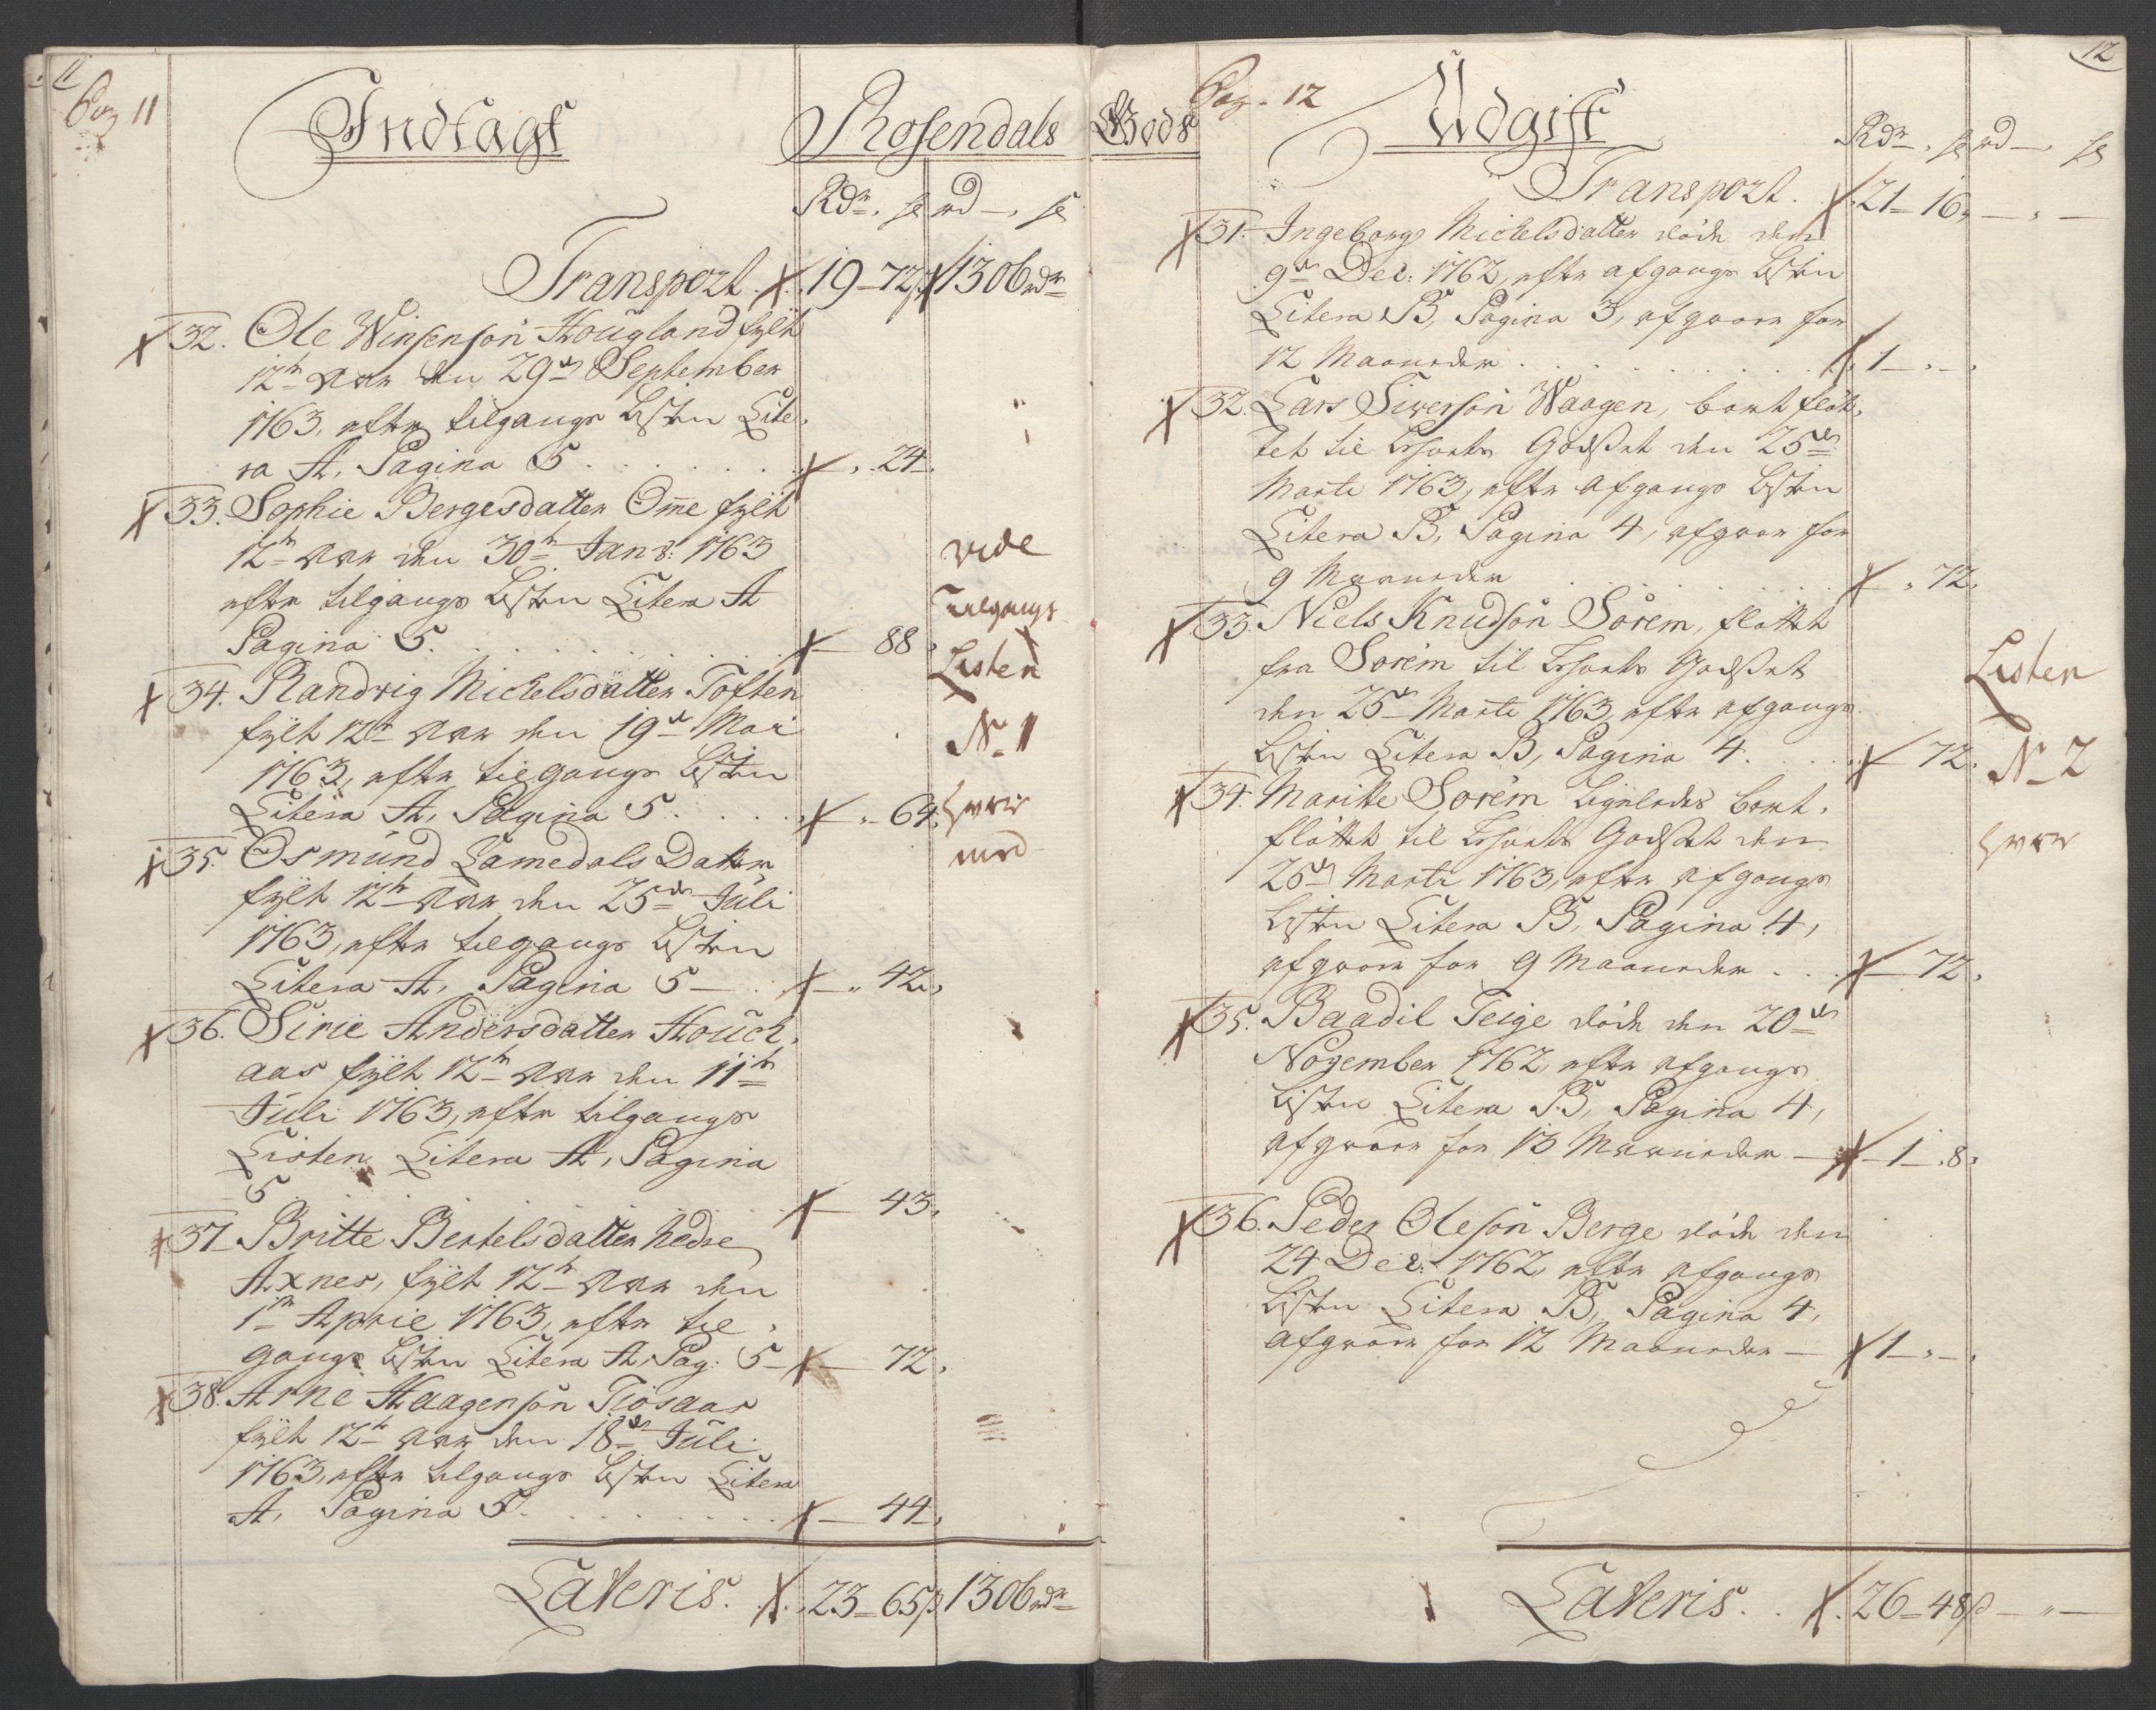 11
Pag 11
Indtagt
Rosendals Gods
Rdr. ß rd — ß
Transport. 19 - 72ß 1306 rdr
32. Ole Winsensøn Hougland fylt
12te Aar den 29de September
1763, efter tilgangs Listen Lite-
ra A, Pagina 5 . . . 24.
33. Sophie Bergesdatter Ome fylt
12te Aar den 30te Janv: 1763
efter tilgangs Listen Litera A
Pagina 5. . . . 88
34. Randvig Michelsdatter Toften
fylt 12te Aar den 19de Mai
1763, efter tilgangs Listen
Litera A, Pagina 5 . . . 64.
35. Osmund Lamedals Datter
fylt 12te Aar den 25de Juli
1763, efter tilgangs Listen
Litera A, Pagina 5 — . 42.
36. Sirie Andersdatter Houck-
aas fylt 12te Aar den 11te
Juli 1763, efter tilgangs
Listen Litera A, Pagina
5 . . . 43.
37 Britte Bertelsdatter Nedre
Axnes, fylt 12te Aar den
1te April 1763, efter til-
gangs Listen Litera A, Pag: 5 — 72.
38. Arne Haagensøn Tiosaas
fylt 12te Aar den 18de Juli
1763, efter tilgangs Listen Litera
A, Pagina 5. . . . 44.
vide
Tilgangs
Listen
No 1
hver
med
Lateris. 23 - 65ß 1306 rdr
12
Pag. 12
Udgift
Rdr. ß rd — ß
Transport. 21 - 16 — " —
31. Ingeborg Michelsdatter døde den
9de Dec: 1762, efter afgangs Listen
Litera B, Pagina 3, afgaar for
12 Maaneder . . . 1 - " -
32. Lars Siversøn Waagen, bort fløt-
tet til Godset den 25de
Marti 1763, efter afgangs Listen
Litera B, Pagina 4, afgaar for
9 Maaneder . . . 72.
33. Niels Knudsøn Sørem, fløttet
fra Sørem til Godset
den 25de Marti 1763, efter afgangs
Listen Litera B, Pagina 4. . . 72.
34. Maritte Sørem ligeledes bort-
fløttet til Godset den
25de Marti 1763, efter afgangs
Listen Litera B, Pagina 4,
afgaar for 9 Maaneder . . 72.
35. Baadil Teige døde den 20de
November 1762, efter afgangs
Listen Litera B, Pagina 4,
afgaar for 13 Maaneder — 1 - 8.
36. Peder Olesøn Berge døde den
24 Dec: 1762, efter afgangs
Listen Litera B, Pagina 4,
afgaar for 12 Maaneder — 1 - " -
Listen
No 2
hver
Lateris. . 26 - 48ß — " —